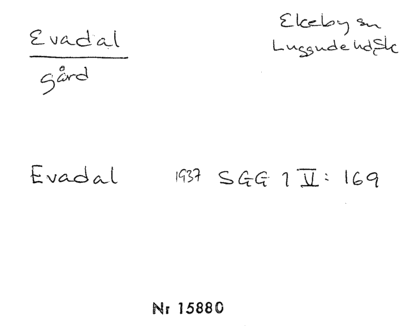 Evadal
gård
Ekeby sn
Luggude hd, Sk
Evadal 1937 SGG 1 V: 169
Nr 15880